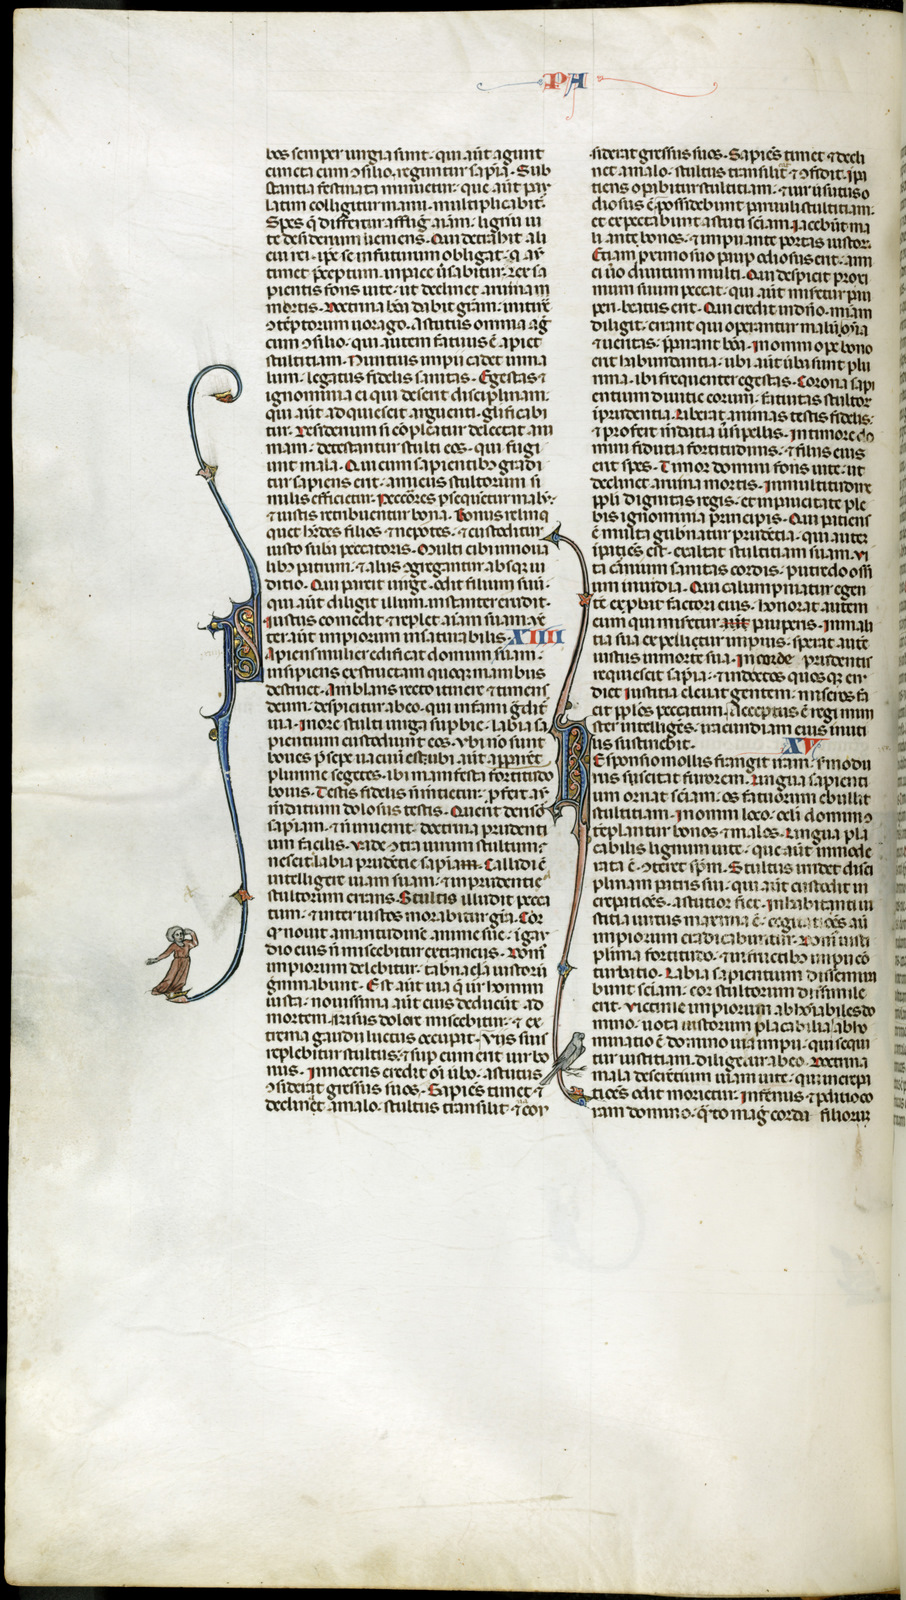 PA
bos semper iurgia sunt· qui aūt agunt
cuncta cum ꝯsilio, reguntur sapīa· Sub
stantia festinata minuetur· que aūt pau
latim colligitur manu· multiplicabit᷑·
Spes q̄ differtur affligit aīam· lignū ui
te desiderium ueniens· Qui detrahit ali
cui rei· ipse se in futurum obligat· q̄ aūt
timet p̄ceptum, in pace ūsabitur· Lex sa
pientis fons uite· ut declinet a ruina
mortis· Doctrina bōa dabit grām· in itinē
ꝯtēptorum uorago· Astutus omnia aḡ
cum ꝯsilio· qui autem fatuus ē aperit
stultitiam· Nuntius impii cadet in ma
lum· legatus fidelis sanitas· Egestas ⁊
ignominia ei qui deserit disciplinam·
qui aūt adquiescit arguenti· glīficabi
tur· Desiderium si cōpleatur delectat ani
mam· detestantur stulti eos· qui fugi
unt mala· Qui cum sapientibꝰ gradi
tur sapiens erit· amicus stultorum si
milis efficietur· Peccōres ꝑsequetur malū·
⁊ iustis retribuentur bona· Bonus relinq
quet hēdes filios ⁊ nepotes· ⁊ custoditur
iusto subā peccatoris· Multi cibi in noua
libꝰ patrum· ⁊ aliis ꝯgregantur absq̨ iu
ditio· Qui parcit uirge· odit filium suū·
qui aūt diligit illum· instanter erudit·
Iustus comedit ⁊ replet aīam suam· uē
ter aūt impiorum insaturabilis· XIIII
apiens mulier edificat domum suam·
insipiens exstructam quoq̨ manibus
destruet· Ambulans recto itinere ⁊ timens
deum· despicitur ab eo· qui infami g̈dit᷑
uia· In ore stulti uirga supbie· labia sa
pientium custodiunt eos· Vbi nō sunt
boues p̄sepe uacuū est· ubi aūt apparēt
plurime segetes· ibi manifesta fortitudo
bouis· Testis fidelis ñ mētietur· ꝓfert aūt
mdatium dolosus testis· Querit derisor
sapiam· ⁊ ñ inuenit· doctrina prudenti
um facilis· Vade ꝯtra uirum stultum·
nescit labia prudētie sapiam· Callidi ē
intelligere uiam suam· ⁊ inprudentie
stultorum errans· Stultus illudit pecca
tum· ⁊ inter iustos morabitur grīa· Cor
q̄ nouit amaritudinē anime sue· ī gau
dio eius ñ miscebitur extraneus· Domꝰ
impiorum delebitur· tabernacl̄a iustorū
germinabunt· Est aūt uia q̄ uīr homini
iusta· nouissima aūt eius deducūt ad
mortem· Risus dolore miscebitur· ⁊ ex
trema gaudii luctus occupat· Viis suis
replebitur stultus· ⁊ sup eum erit uir bo
nus· Innocens credit oī ūbo· astutus
ꝯsiderat gressus suos· Sapiēs timet ⁊
declinat a malo· stultus transilit· ⁊ con
siderat gressus suos· Sapiēs timet ⁊ decli
net a malo· stultus transilit ⁊ ꝯfidit· Ipa
tiens opabitur stultitiam· ⁊ uir ūsutus o
diosus ē· possidebunt paruuli stultitiam·
et expectabunt astuti sciam· Iacebūt ma
li ante bonos· ⁊ impii ante portas iustor·
Etiam proximo suo paup odiosus erit· ami
ci ūo diuitum multi· Qui despicit proxi
mum suum peccat· qui aūt misetur pau
peri· beatus erit· Qui credit in dño· miam
diligit· errant qui operantur malū· mīa
⁊ ueritas p̄parant bōa· In omni ope bono
erit habundantia· ubi aūt ūba sunt plu
rima· ibi frequenter egestas· Corona sapi
entium diuitie eorum· fatuitas stultor
īprudentia· Liberat animas testis fidelis·
⁊ profert mdatia ūsipellis· In timore do
mini fiducia fortitudinis· ⁊ filiis eius
erit spes· Timor domini fons uite· ut
declinet a ruina mortis· In multitudine
ppli dignitas regis· et in paucitate ple
bis ignominia principis· Qui patiens
ē multa gubnatur prudētia· qui autē
īpatiēs est· exaltat stultitiam suam· Vi
ta carnium sanitas cordis· putredo ossi
um inuidia· Qui calumpniatur egen
tē exꝓbat factori eius· honorat autem
eum qui misetur pauperis· In mali
tia sua expelletur impius· sperat autē
iustus in morte sua· In corde prudentis
requiescit sapīa· ⁊ indoctos quosq̨ eru
diet· Iustitia eleuat gentem· miseros fa
cit pplos peccatum· Acceptus ē regi mini
ster intelligēs· iracundiam eius inuti
lis sustinebit· XV
Esponsio mollis frangit iram· sermo du
rus suscitat furorem· Lingua sapienti
um ornat sciam· os fatuorum ebullit
stultitiam· In omni loco· oculi domini ꝯ
templantur bonos ⁊ malos· Lingua pla
cabilis lignum uite· que aūt inmode
rata ē ꝯteret spm· Stultus irridet disci
plinam patris sui· qui aūt custodit in
crepatiōes· astutior fiet· In habundanti iu
stitia uirtus maxima ē· cogitatiōes aū
impiorum eradicabuntur· Domꝰ iusti
plurima fortitudo· ⁊ in fructibꝰ impii cō
turbatio· Labia sapientium disseminа
bunt sciam· cor stultorum dissimile
erit· Victime impiorum abhoīabiles do
mino· uota iustorum placabilia· abho
minatio ē domino uia impii· qui sequi
tur iustitiam· diligetur ab eo· Doctrina
mala deserentium uiam uite· qui increpa
tiōes odit morietur· Infernus ⁊ pditio co
ram domino· q̄to mag̃ corda filiorum